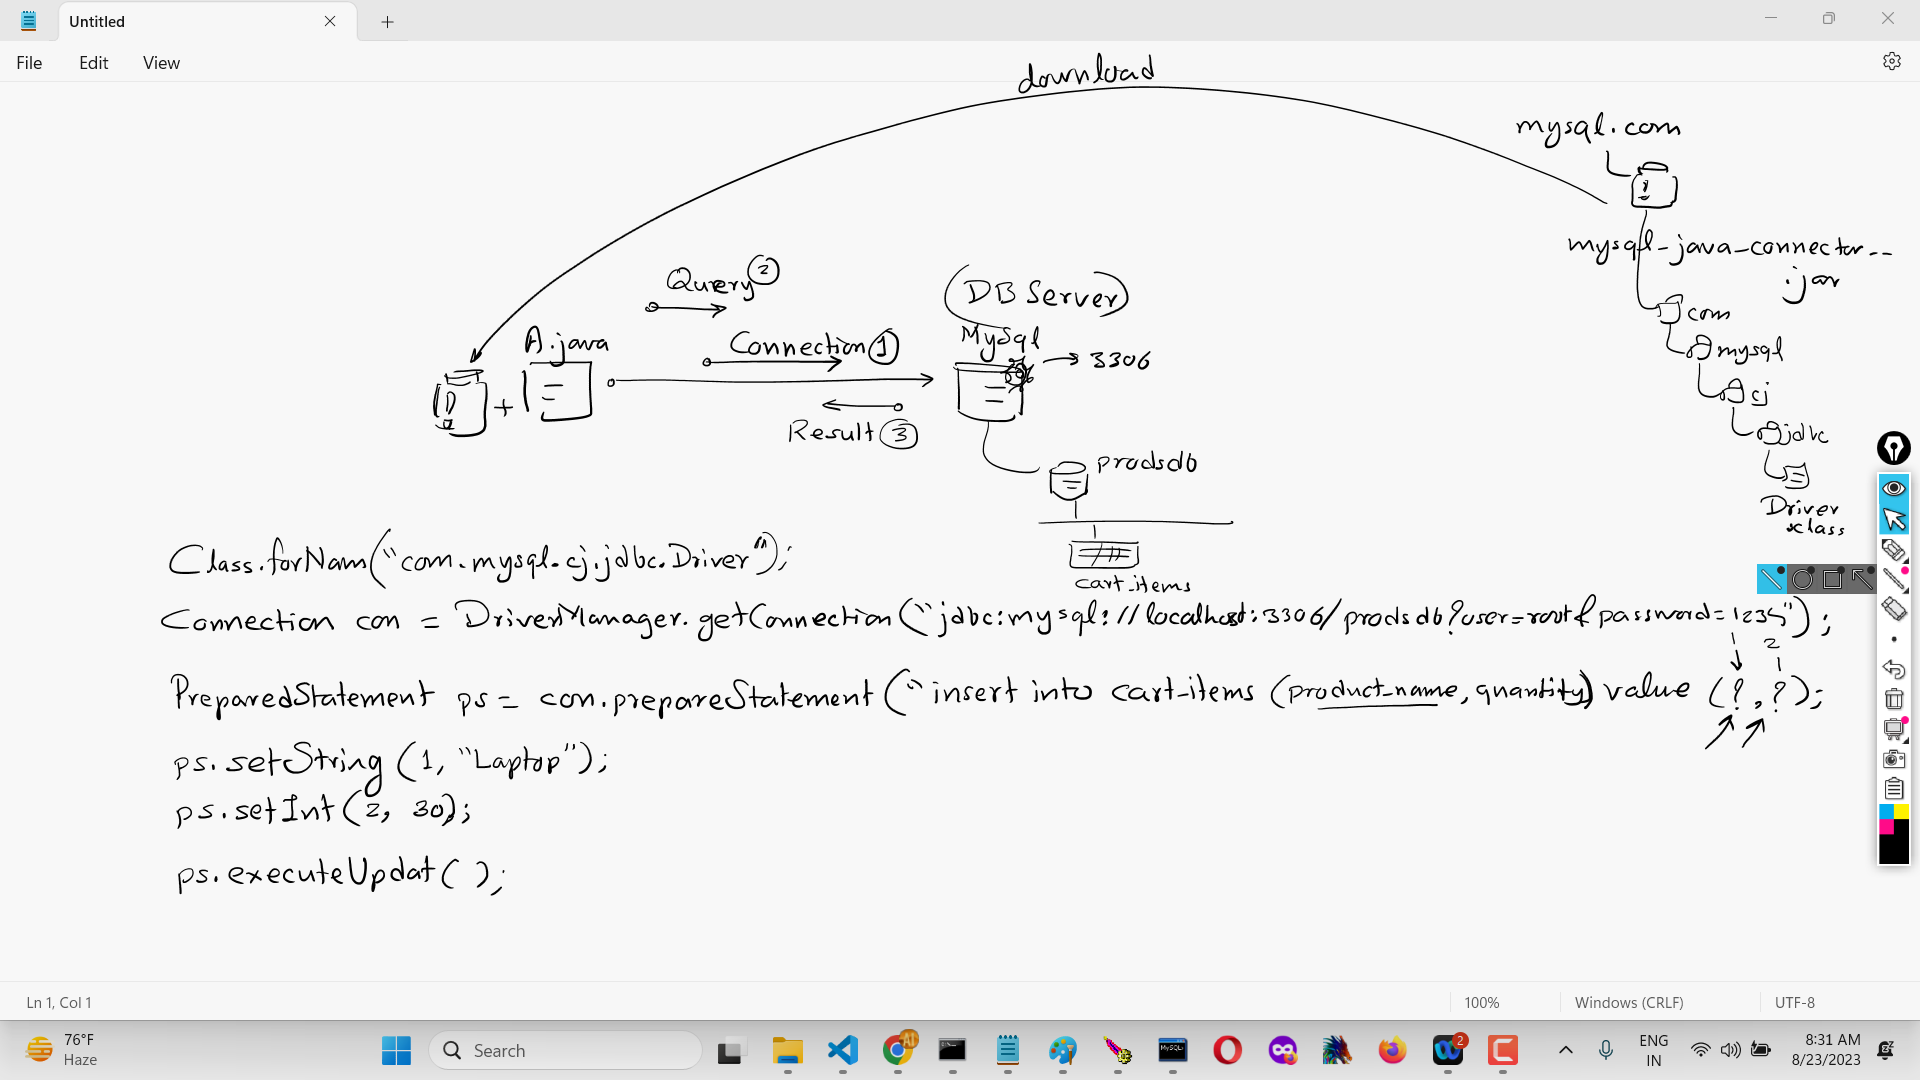 Untitled
File Edit View
download
mysql.com
mysql-java-connector--
.jar
com
mysql
cj
jdbc
Driver
class
Query 2
(DB Server)
A.java
MySql
Connection 1
3306
D
+
Result 3
prodsdb
cart_items
Class.forNam("com.mysql.cj.jdbc.Driver");
Connection con = DriverManager.getConnection("jdbc:mysql://localhost:3306/prodsdb?user=root&password=1234");
1 2
PreparedStatement ps = con.prepareStatement("insert into cart_items (product_name, quantity) value (?,?);
ps.setString (1, "Laptop");
ps.setInt (2, 30);
ps.executeUpdat( );
Ln 1, Col 1
100%
Windows (CRLF)
UTF-8
76°F
Haze
Search
ENG
IN
8:31 AM
8/23/2023